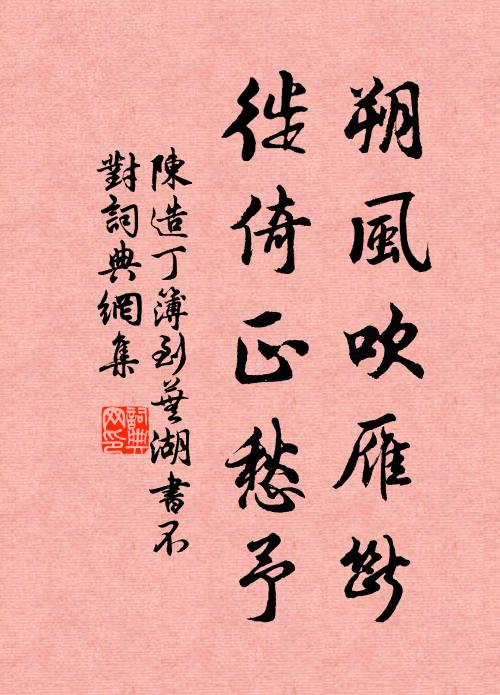 朔風吹雁斷
徙倚正愁予
陳造丁簿到蕪湖書不
對詞典網集
詞典網印